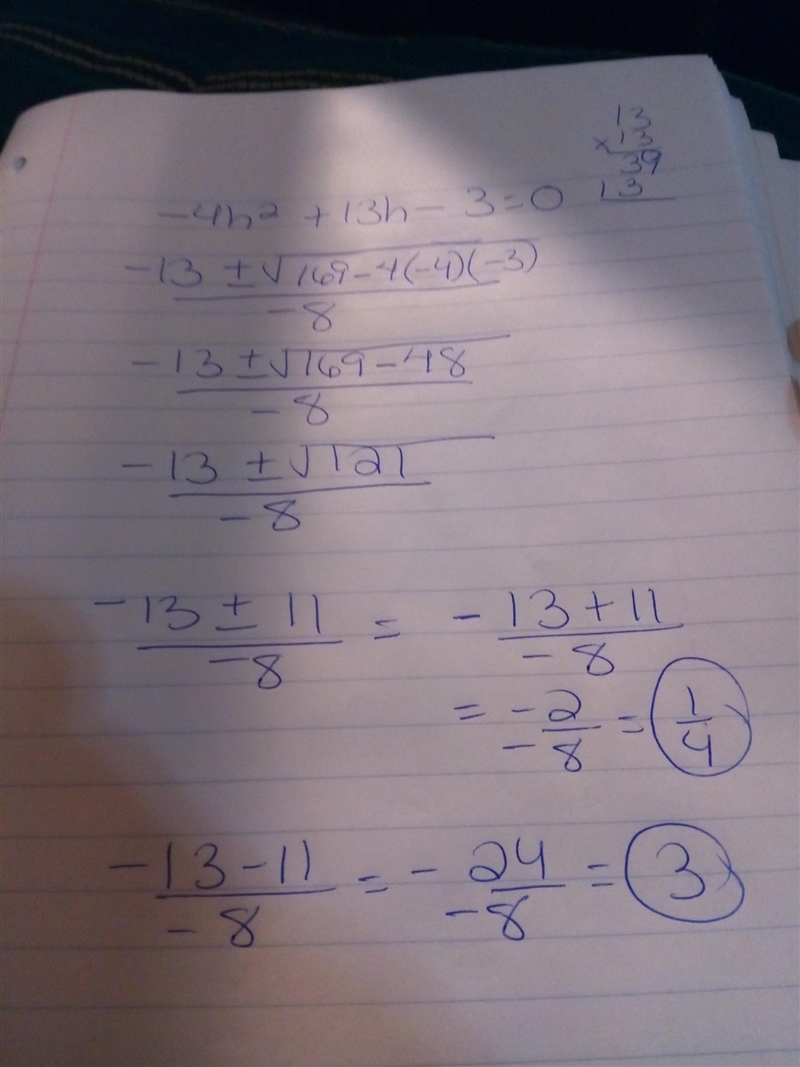 13
×13
39
13
-4h² + 13h - 3 = 0
-13 ± √169 - 4(-4)(-3)
-8
-13 ± √169 - 48
-8
-13 ± √121
-8
-13 ± 11 = -13 + 11
-8 -8
= -2 = 1
-8 4
-13 - 11 = -24 = 3
-8 -8